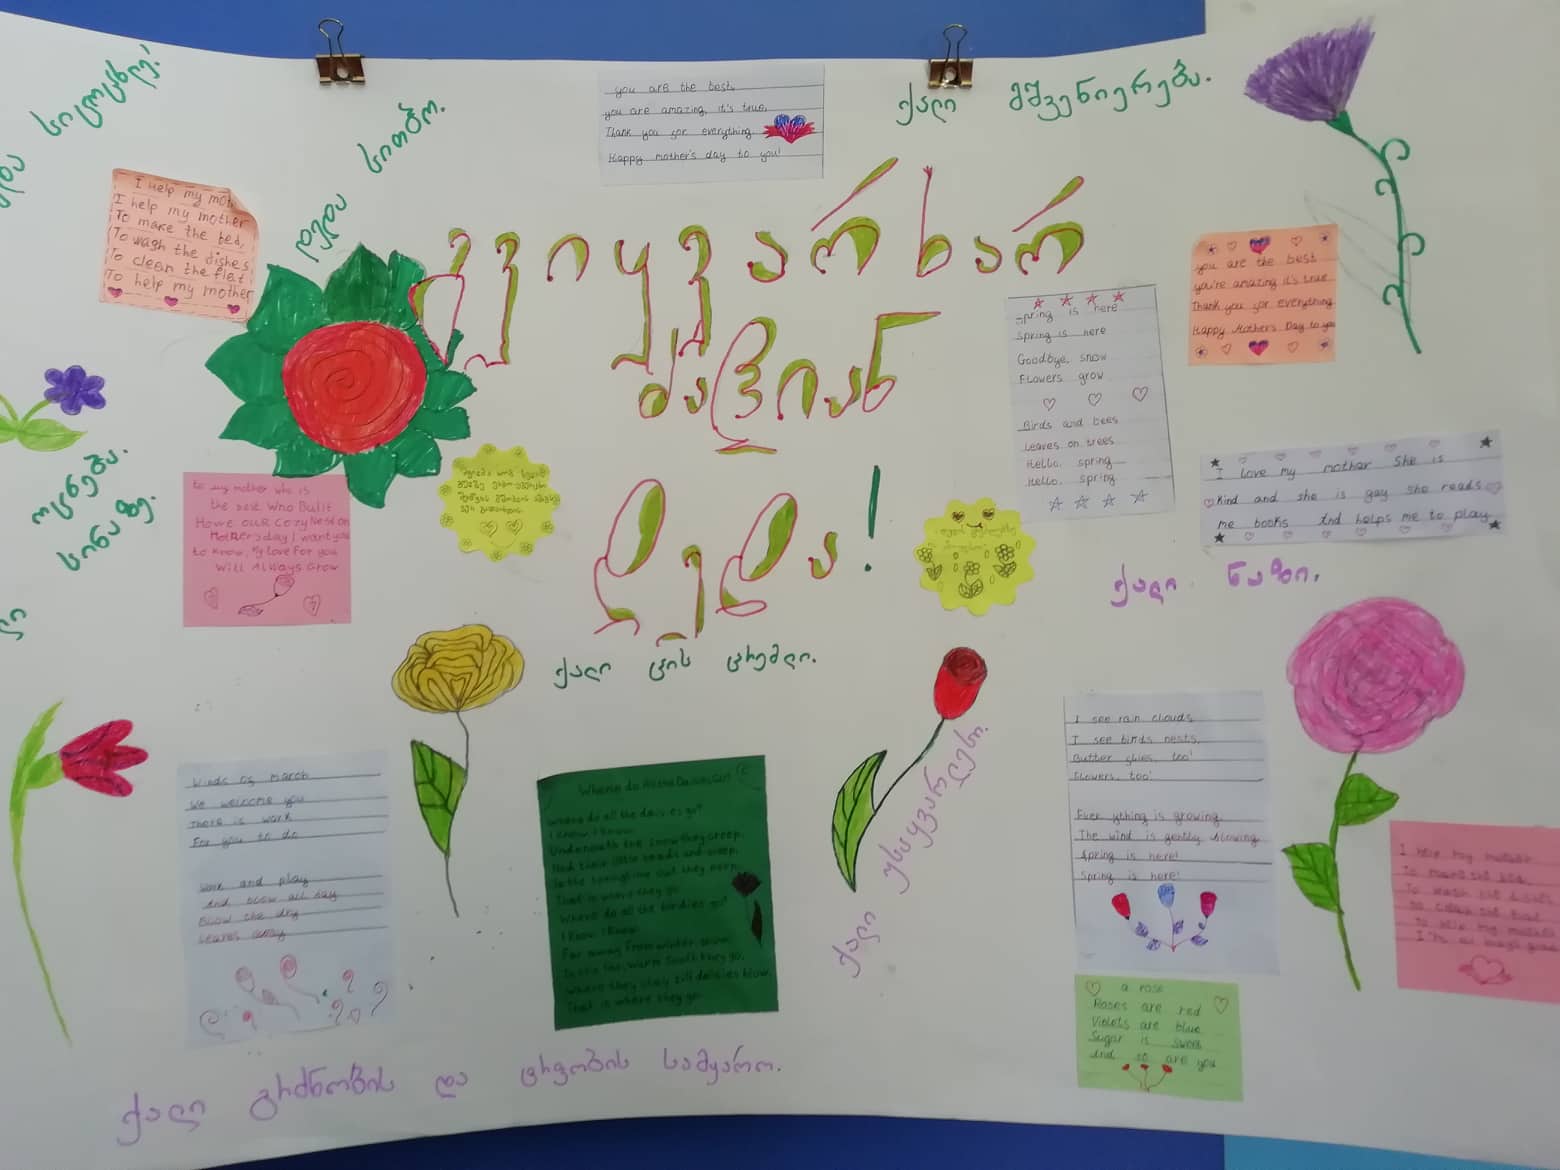 სილამაზე!
დედა სითბო.
you are the best.
you are amazing, it's true.
Thank you for everything
Happy mother's day to you!
ქალი მშვენიერება.
I help my mot
I help my mother
To make the bed,
To wash the dishes
To clean the flat
To help my mother
მიყვარხარ
ძალიან
დედა!
you are the best
you're amazing it's true
Thank you for everything
Happy Mother's Day to you
Spring is here
Spring is here
Goodbye, snow
Flowers grow
Birds and bees
Leaves on trees
Hello, spring
Hello, spring
I love my mother She is
kind and she is gay she reads
me books And helps me to play
ოცნება.
სინაზე.
to my mother who is
the best Who Built
Home our Cozy Nest on
Mother's day I want you
to know, My love For you
Will Always Grow
ქალი ნაზი.
ქალი ცის ცრემლი.
ქალი უსაყვარლესი.
Winds of march
We welcome you
There is work
For you to do
Work and play
And blow all day
Blow the dry
Leaves away
Where do all the daisies go?
I know, I know
Underneath the snow they creep,
Nod their little heads and sleep,
In the springtime out they peep,
That is where they go
Where do all the birdies go?
I know I know
Far away from winter snow
To the far, warm South they go,
Where they stay till daisies blow,
That is where they go
I see rain clouds
I see birds nests,
Butter flies, too!
Flowers, too!
Ever ything is growing
The wind is gently blowing
Spring is here!
Spring is here!
a rose
Roses are red
Violets are blue
Sugar is sweet
And so are you
I help my mother
To make the bed,
To wash the dishes
To clean the flat
To help my mother
ქალი გრძნობის და ცრფობის სამყარო.